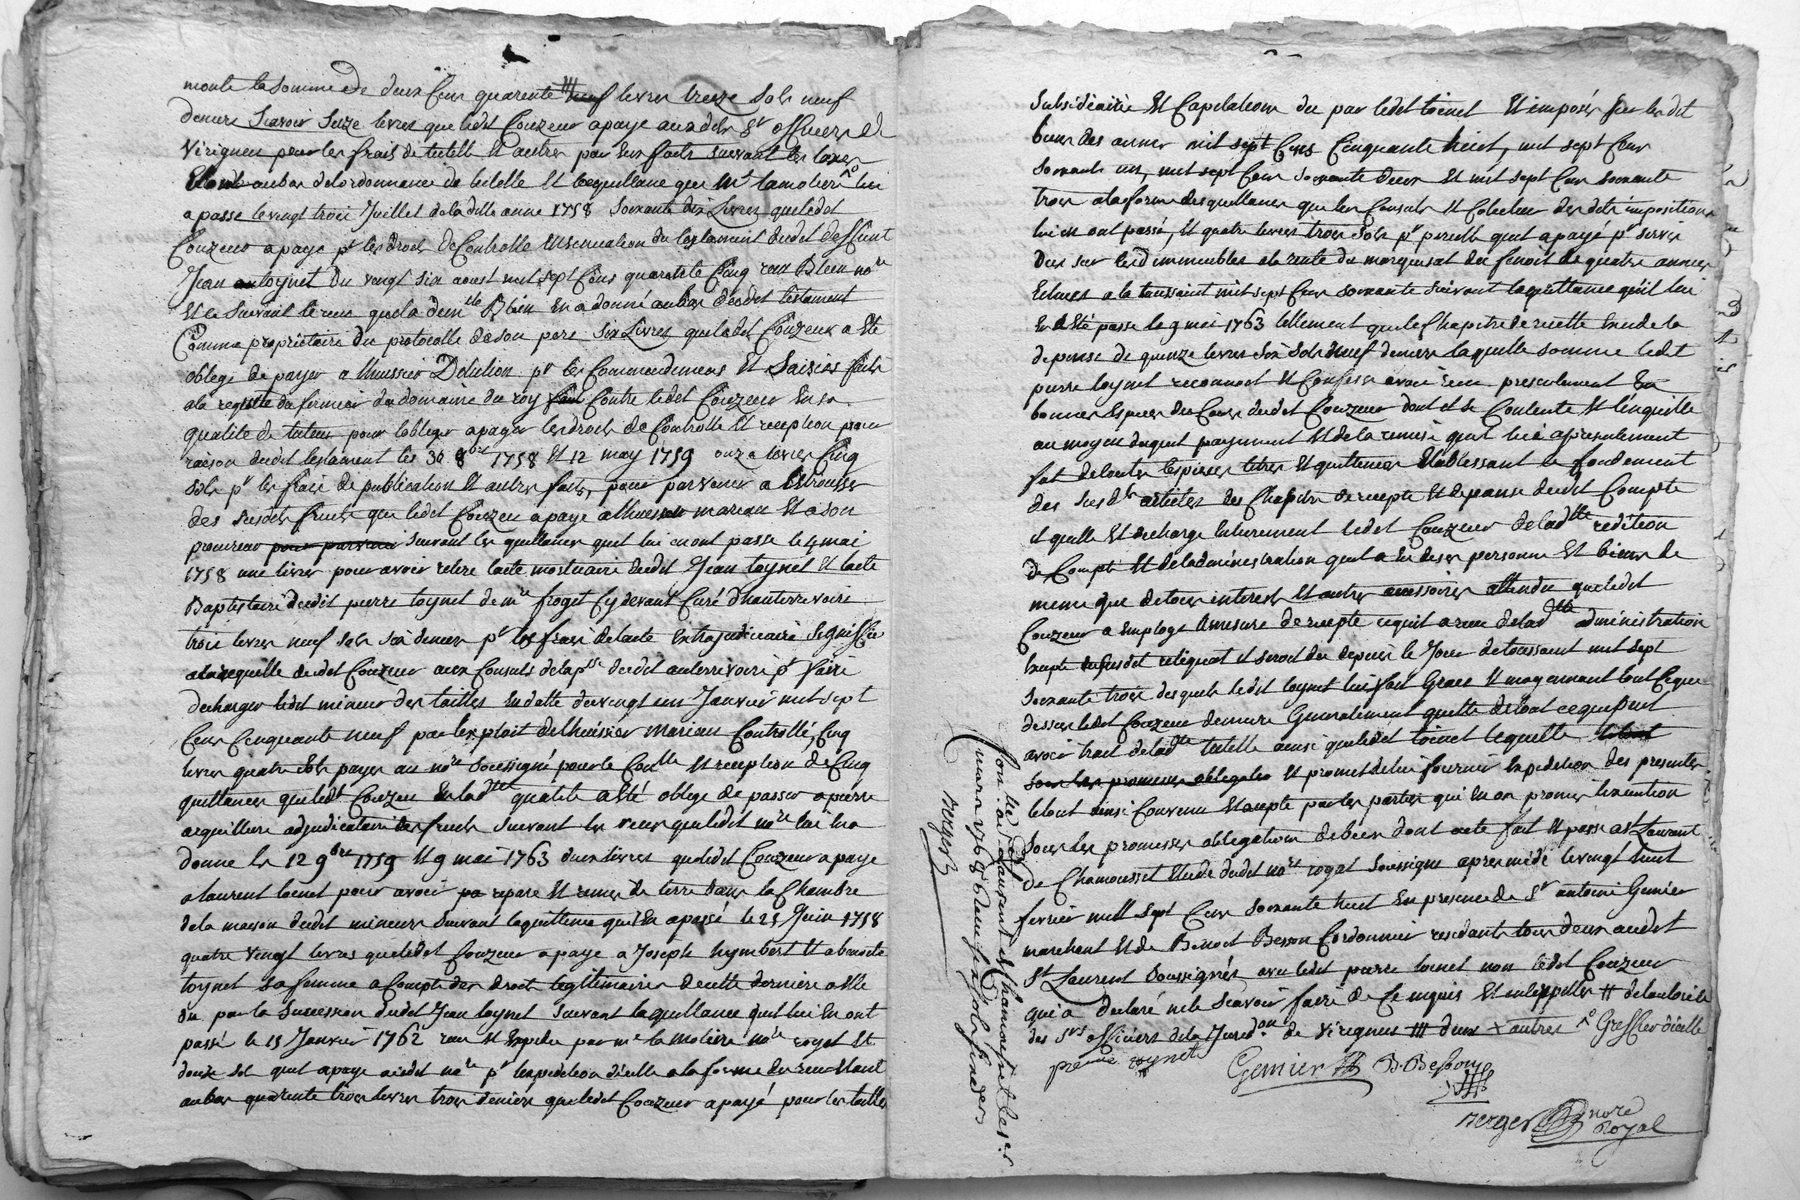 monte la somme de deux Cens quarente neuf livres treize sols neuf
deniers Scavoir Seize livres que ledit Couzeur a paye auxdits Srs officiers de
Virigneu pour les frais de tutelle et autres par eux faits suivant les taxes
au bas de lordonnance de tutelle et la quittance que Mr lamoliere lui
a passe le vingt trois Juillet de la ditte anne 1758 Soixante dix Livres que ledit
Couzeur a paye pr les droits de Controlle insinuation du testament dudit deffunt
Jean toynet du vingt six aoust mil sept Cens quarente Cinq reçu Blein nore
et le suivant le reçu que la demlle Blein en a donné au bas dudit testament
Comme propriétaire du protocolle de son pere Six Livres que ledit Couzeur a été
oblegé de payer a lhuissier Dolulion pr les Commandemens et Saisies faits
a la requette du fermier du domaine du roy Contre ledit Couzeur en sa
qualité de tuteur pour lobleger a payer les droits de Controlle et reception pour
raison dudit testament les 30 8bre 1758 et 12 may 1759 onze livres Cinq
sols pr les frais de publication et autres faits, pour parvenir a letrousse
des susdits fruits que ledit Couzeur a paye a lhuissier mariau et a son
procureur suivant les quittances quil lui en ont passe le 4 mai
1758 une livre pour avoir retere lacte mortuaire dudit Jean toynet et lacte
Baptistaire dudit pierre toynet de mre froget Cy devant Curé dhauterrevoire
trois livres neuf sols six deniers pr les frais de lacte extrajudiciaire Segniffié
a la requette dudit Couzeur aux Consuls de la psse dudit auterrevoire pr faire
decharger ledit mineur des tailles en datte du vingt un Janvier mil sept
Cens Cinquante neuf par lexploit de lhuissier mariau Controllé, Cinq
livres quatre sols payes au nore soussigné pour le Conlle et reception de Cinq
quittances que ledt Couzeur en ladtte qualité a été oblegé de passer a pierre
arquilliere adjudicataire des fruits suivant les reçus que ledit nore lui en a
donné les 12 9bre 1759 et 9 mai 1763 deux livres que ledit Couzeur a paye
a laurent toinet pour avoir repare et remis de terre dans la Chambre
de la maison dudit mineur suivant la quittance qu'il en a passé le 25 Juin 1758
quatre vingt livres que ledit Couzeur a paye a Joseph hymbert et a benoite
toynet sa femme a Compte des droits legitimaires de cette derniere a elle
du par la Succession dudit Jean toynet suivant la quittance quil lui en ont
passé le 15 Janvier 1762 reçu et expedie par me la Moliere nore royal et
douze sols quil a paye audit nore pr lexpedition dicelle a la forme du reçu etant
au bas quarente trois livres trois deniers que ledit Couzeur a payé pour les tailles
Subsidiaire et Capitation du par ledit toinet et imposés sur lesdits
biens des annees mil sept Cens Cinquante huit, mil sept Cens
soixante un, mil sept Cens soixante deux et mil sept Cens soixante
trois a la forme des quittances que les Consuls et Colecteur desdits impositions
lui en ont passé, et quatre livres trois sols pr pareille quil a paye pr servis
dus sur lesd immeubles a la rente du marquisat du finoit de quatre annees
echues a la toussaint mil sept Cens soixante suivant la quittance qu'il lui
en a été passe le 9 mai 1763 tellement que le Chapitre de recette excede la
depense de quinze livres six sols neuf deniers laquelle somme ledit
pierre toynet reconnoit et Confesse avoir reçu presentement en
bonnes Especes du Cours dudit Couzeur dont il se Contente et len quitte
au moyen duquel payement et de la remise quil lui a presentement
fait de toutes les pieces titres et quittances etablissant le fondement
des susdts articles des Chapitre de recepte et depense dudit Compte
il quitte et decharge entierement ledit Couzeur de ladtte redition
de Compte et de ladministration quil a eu de ses personne et biens de
meme que de tous interets et autres accessoires attendu que ledit
Couzeur a employe a mesure de recepte ce quil a reçu de ladtte administration
excepté susdit reliquat il seroit du depuis le Jour de toussaint mil sept
soixante trois desquels ledit toynet lui fait Grace et moyennant tout Ceque
dessus ledit Couzeur demeure Generalement quitte de tout ce que peut
avoir trait de ladtte tutelle ainsi que ledit toinet lequitte
et promet de lui fournir expedition des presentes
le tout ainsi Convenu et accepté par les parties qui en on promis lexecution
sous les promesses obligation de bien dont acte fait et passé a St Laurent
de Chamousset etude dudit nore royal Soussigné apres midi le vingt huit
fevrier mill sept Cens soixante huit en presence de Sr antoine Gemier
marchant et de Benoit Besson Cordonnier residants tous deux audit
St Laurent Soussignés avec ledit pierre toinet non ledit Couzeur
qui a declaré ne le Scavoir faire de Ce enquis et interpellé # de lautorité
des Srs officiers de la Juredon de Virigneus ### deux x autres Greffier dicelle
pierre toynet
Gemier
B. Besson
Berger nore Royal
Con.lé a St Laurent de Chamousset le 1er
mars 1768 reçu
Berger